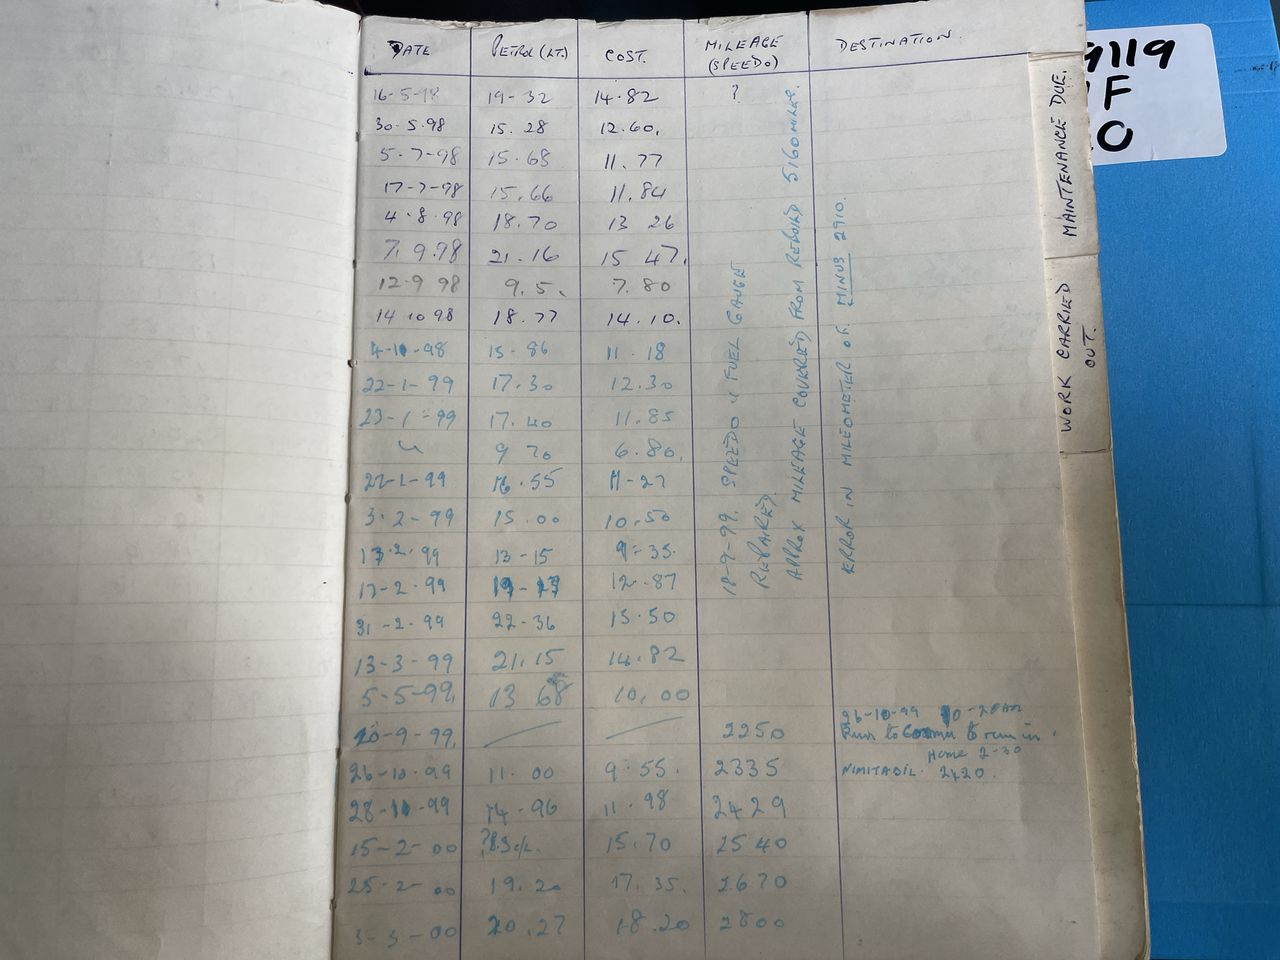 DATE PETROL (LT.) COST. MILEAGE (SPEEDO) DESTINATION.
16-5-98 19-32 14.82 ?
30.5.98 15.28 12.60.
5-7-98 15.68 11.77
17-7-98 15.66 11.84
4.8.98 18.70 13 26
7.9.98 21.16 15 47.
12.9 98 9.5. 7.80
14 10 98 18.77 14.10.
15-86 11.18
22-1-99 17.30 12.30
23-1-99 17.40 11.85
9 70 6.80.
16.55 11-27
3.2-99 15.00 10.50
13-15 9-35.
17-2-99 12.87
31-2-99 22-36 15.50
13-3-99 21.15 14.82
5-5-99. 13 68 10.00
20-9-99. 2250
26-10-99 11.00 9.55. 2335
14-96 11.98 2429
15-2-00 15.70 2540
25-2-00 19.20 17.35. 2670
3-3-00 20.27 18.20 2800
SPEEDO & FUEL GAUGE
REPAIRED.
APPROX MILEAGE COVERED FROM REBUILD 5160 MILES.
ERROR IN MILEOMETER OF MINUS 2910.
26-10-99
Run to to run in.
Home 2-30
2420.
MAINTENANCE DUE.
WORK CARRIED
OUT.
9119
F